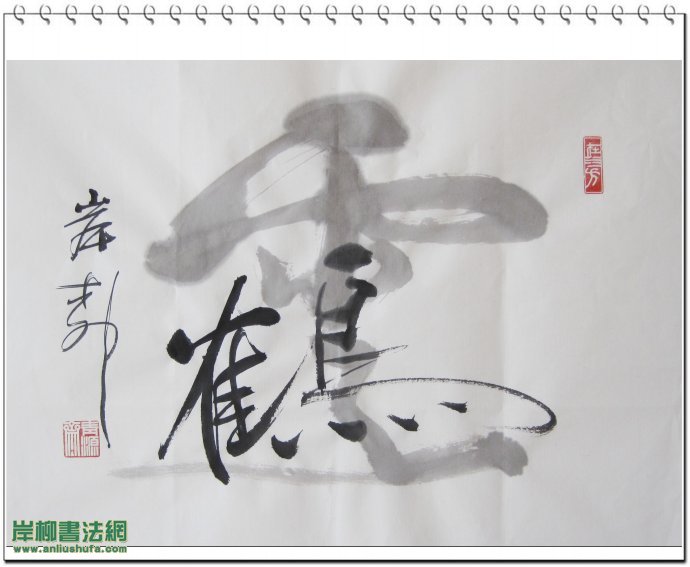 雲鶴
岸柳
岸柳書法網
www.anliushufa.com